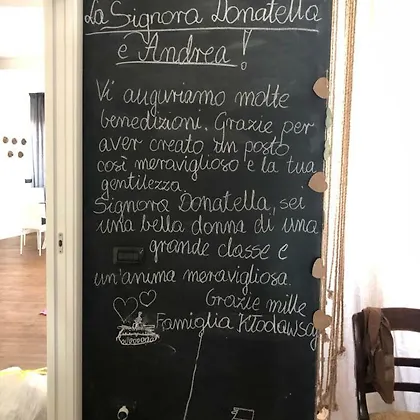 La Signora Donatella
e Andrea!
Vi auguriamo molte
benedizioni. Grazie per
aver creato un posto
così meraviglioso e la tua
gentilezza.
Signora Donatella, sei
una bella donna di una
grande classe e
un'anima meravigliosa.
Grazie mille
Famiglia Kłodawscy